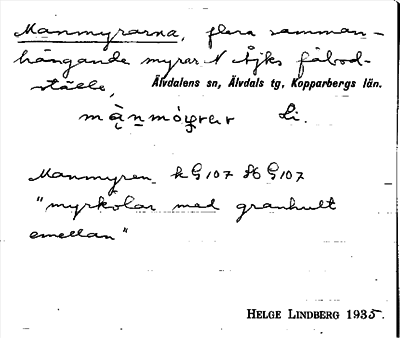 Manmyrarna, flera samman-
hängande myrar N Åjks fäbod-
ställe,
Älvdalens sn, Älvdals tg, Kopparbergs län.
Li.
Manmyren k G 107 Hö G 107
"myrkölar med granhult
emellan"
HELGE LINDBERG 1935.